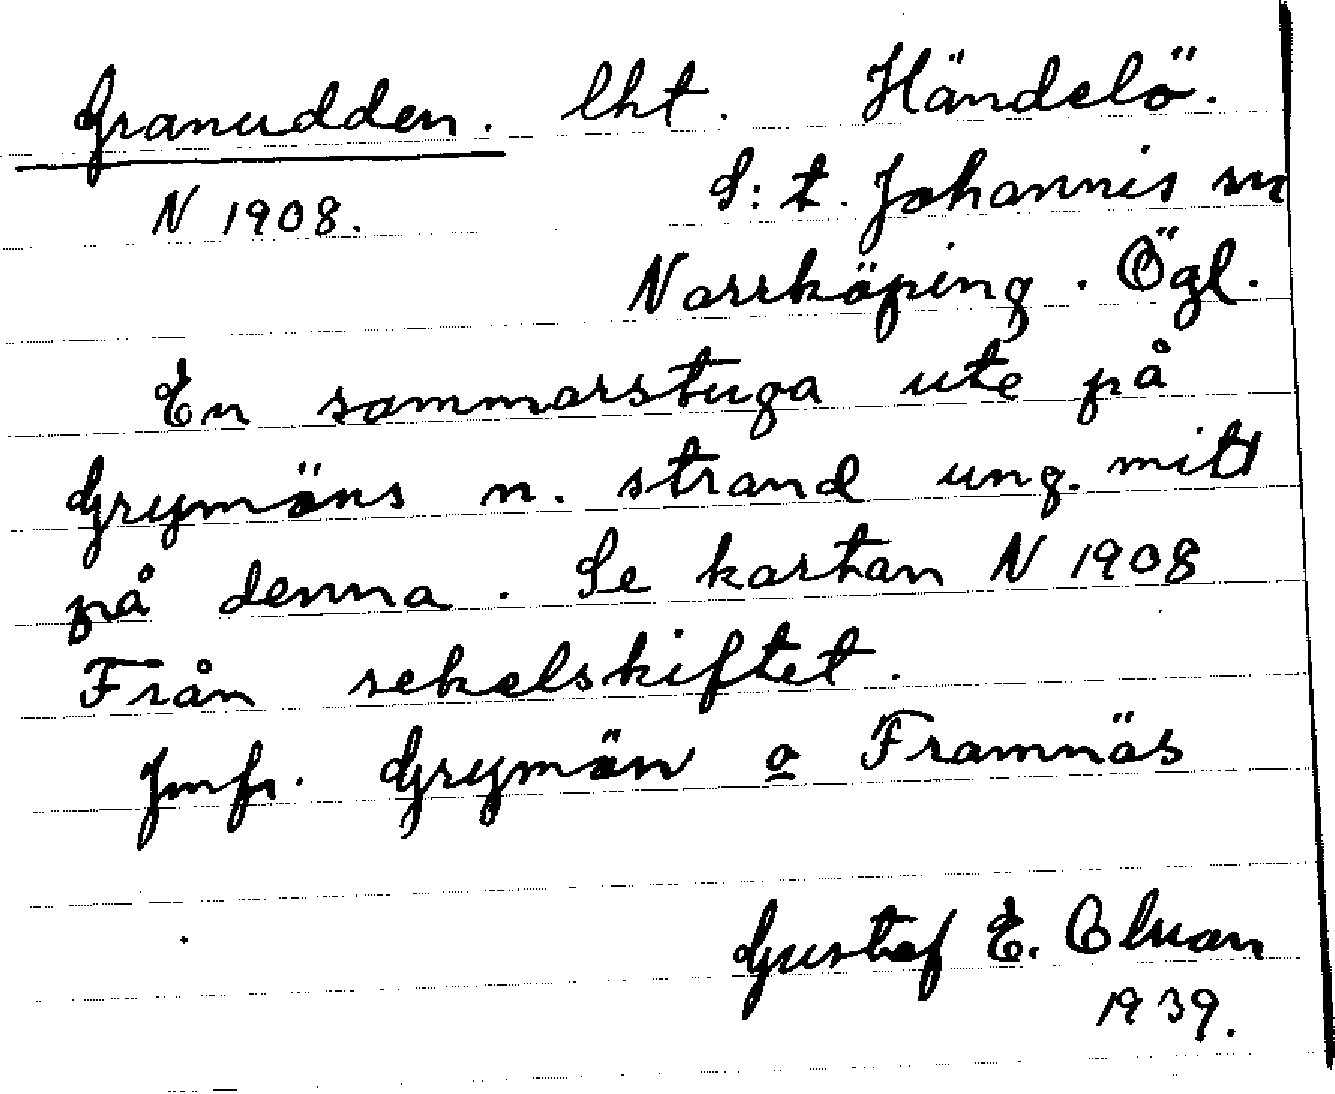 Granudden. lht. Händelö.
N 1908. S:t. Johannis sn
Norrköping. Ögl.
En sommarstuga ute på
Grymöns n. strand ung. mitt
på denna. Se kartan N 1908
Från sekelskiftet.
Jmfr. Grymön o Framnäs
Gustaf E.
1939.